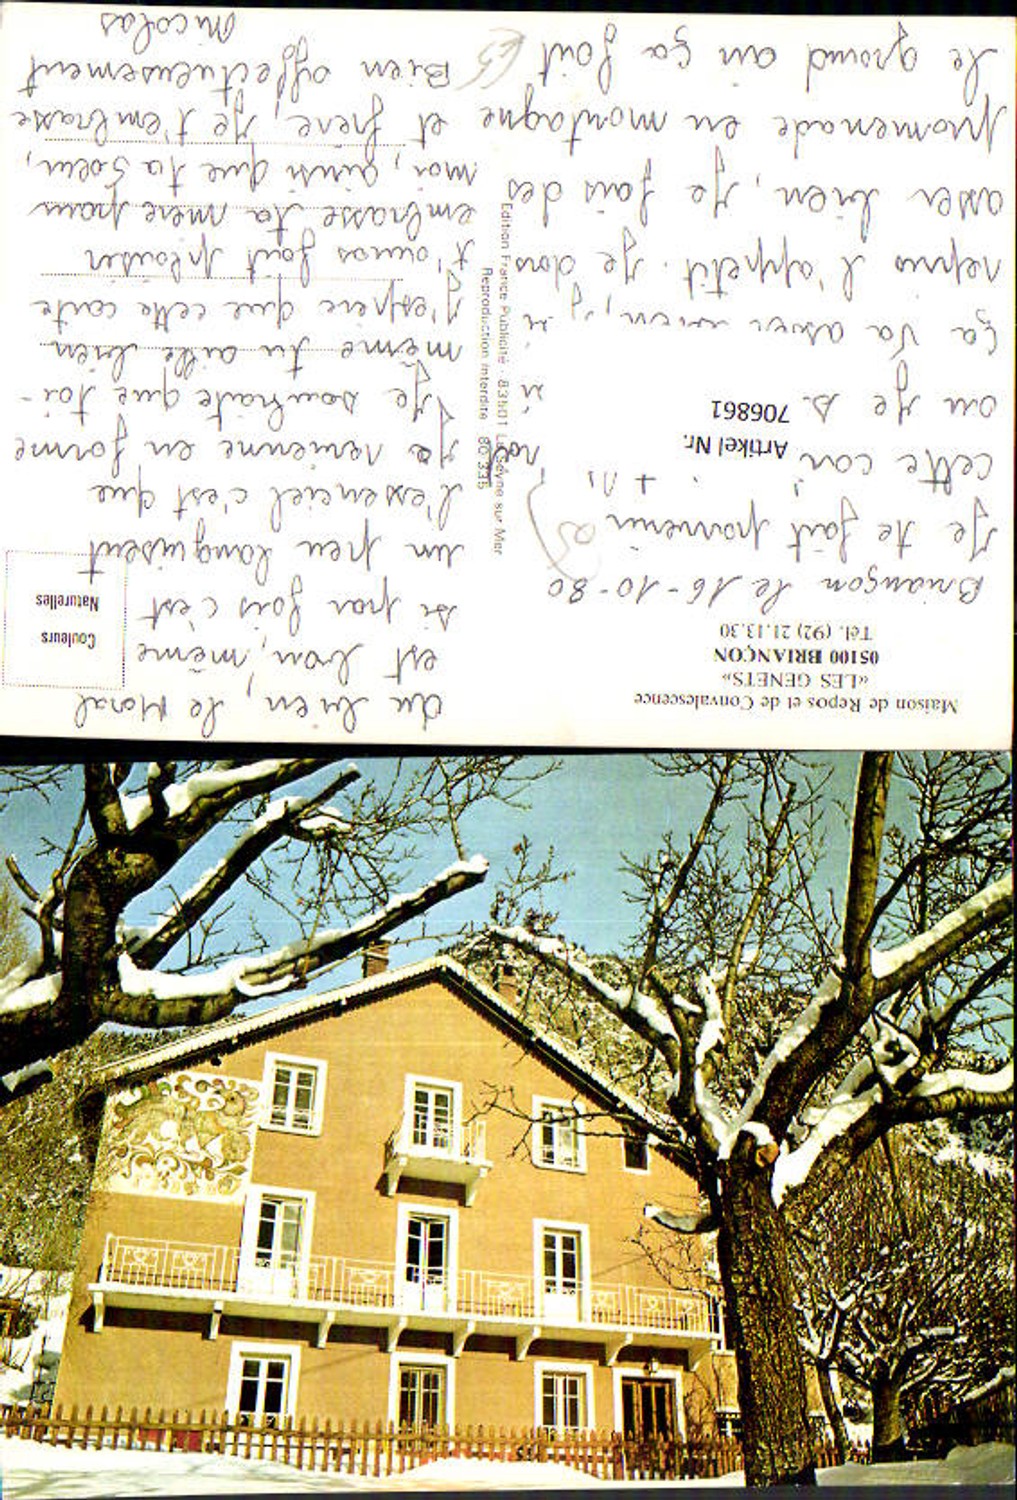 Maison de Repos et de Convalescence
«LES GENETS»
05100 BRIANÇON
Tél. (92) 21.13.30
Briançon le 16-10-80
Je te fait parvenir
cette car
ou je s
ça va asser bien, j'
repris l'appetit. Je dors
asser bien, je fais des
promenade en montagne
le grand air ça fait
Artikel Nr.
706861
Edition France Publicité - 83501 La Seyne sur Mer
Reproduction interdite 80 335
Couleurs
Naturelles
du bien, le Moral
est bon, même
si par fois c'est
un peu languisent
l'essenciel c'est que
je revienne en forme
Je souhaite que toi-
même tu aille bien
J'espère que cette carte
t'auras fait plaisir
embrasse ta mère pour
moi, ainsi que ta Soeur,
et frère, je t'embrasse
Bien affectueusement
Nicolas